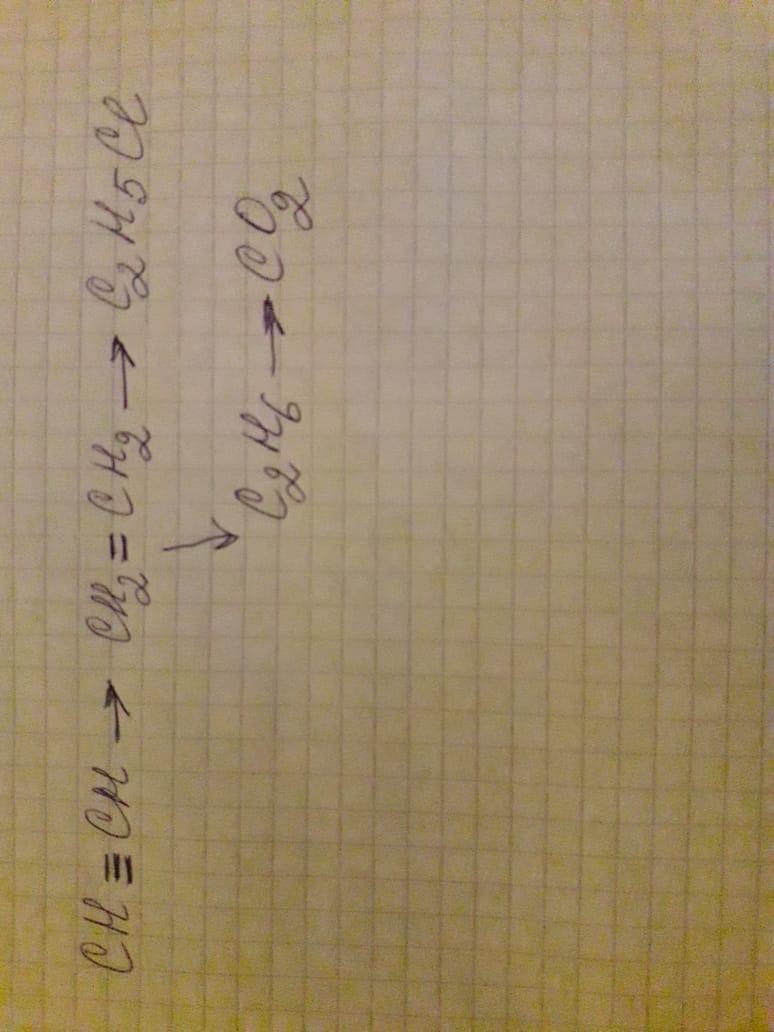 CH≡CH → CH₂=CH₂ → C₂H₅Cl
↘
C₂H₆ → CO₂